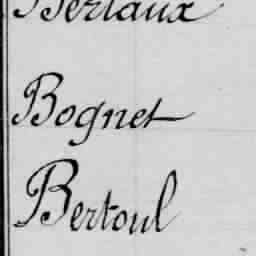 Bertaux
Bognet
Bertoul